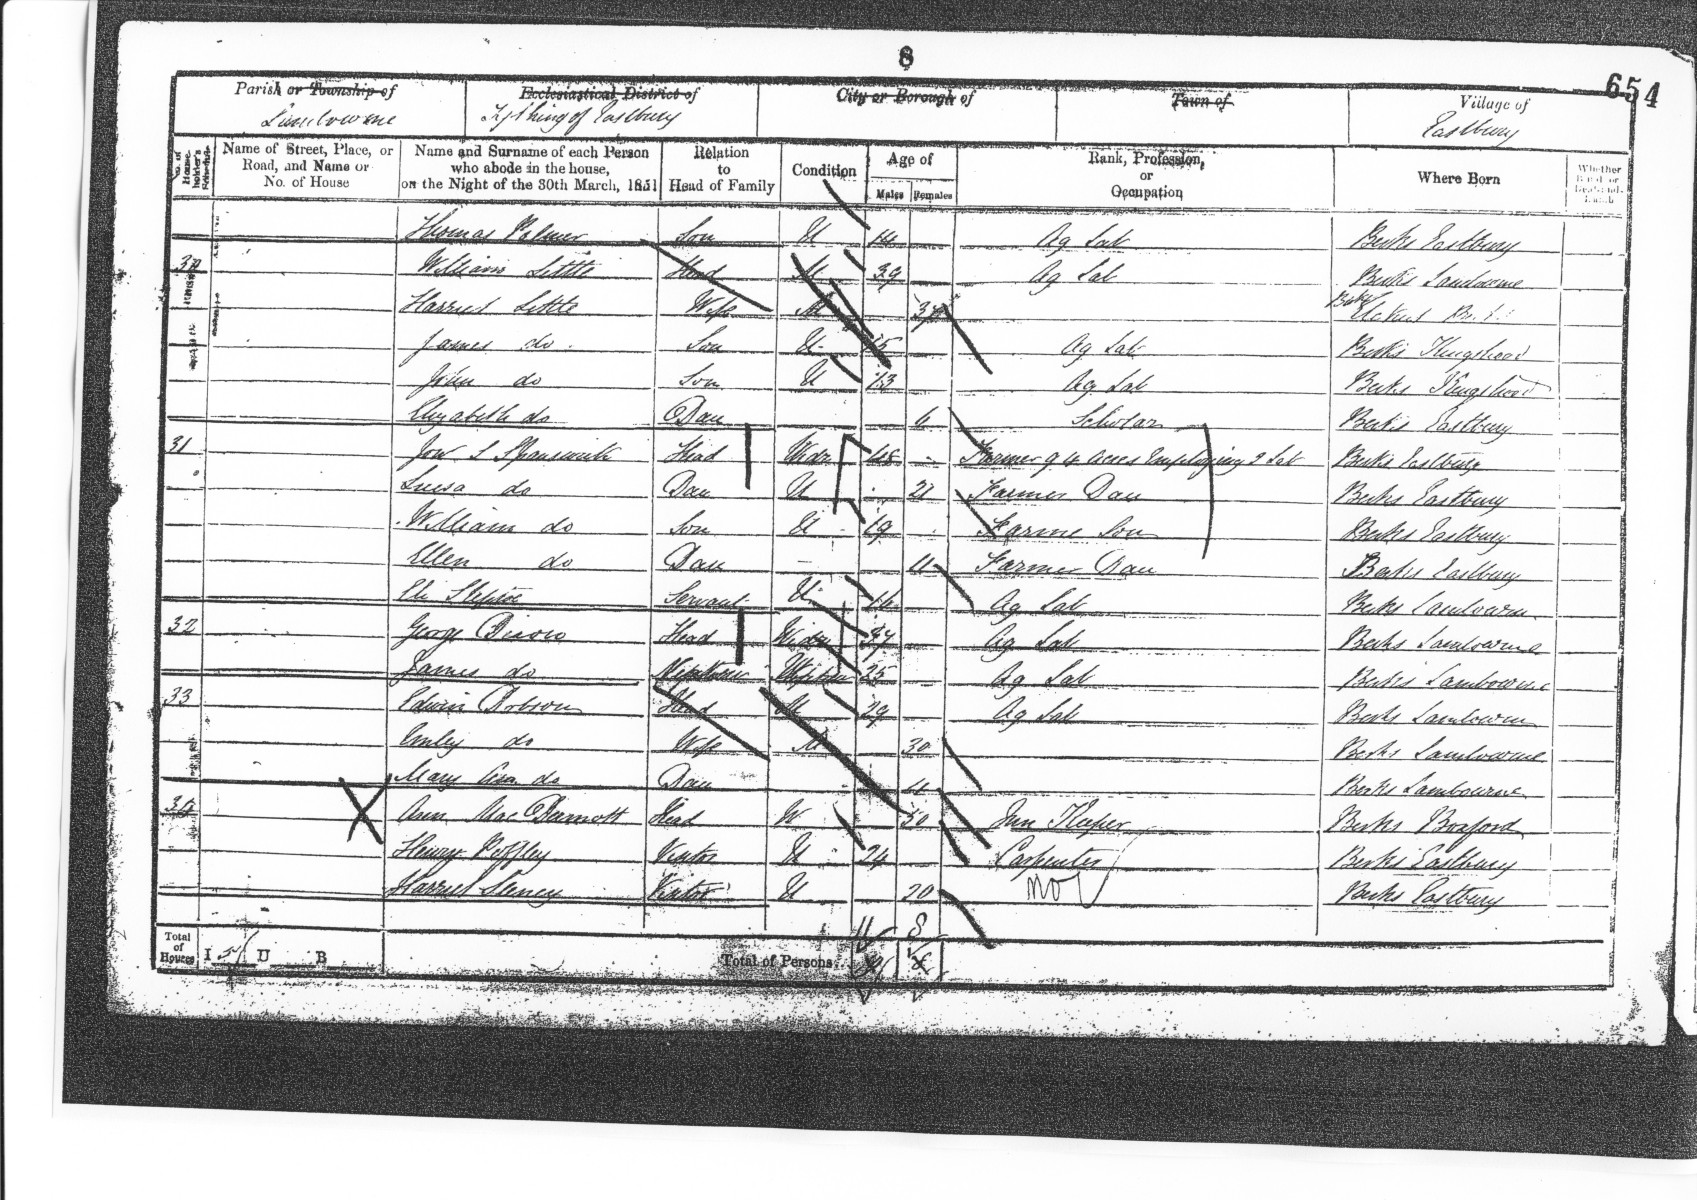 8
654
Parish or Township of
Ecclesiastical District of
City or Borough of
Town of
Village of
Lambourne
Tything of Eastbury
Eastbury
No. of House-holder's Schedule
Name of Street, Place, or Road, and Name or No. of House
Name and Surname of each Person who abode in the house, on the Night of the 30th March, 1851
Relation to Head of Family
Condition
Age of
Males Females
Rank, Profession, or Occupation
Where Born
Whether Blind or Deaf-and-Dumb
Thomas Palmer Son U 14 Ag Lab Berks Eastbury
30 William Little Head M 39 Ag Lab Berks Lambourne
Harriet Little Wife M 37 Berks
James do Son U 15 Ag Lab Berks
John do Son U 13 Ag Lab Berks
Elizabeth do Dau 6 Scholar Berks Eastbury
31 Head Widr 48 Farmer of 4 acres Employing 2 Lab Berks Eastbury
Luisa do Dau U 21 Farmer Dau Berks Eastbury
William do Son U 19 Farme Son Berks Eastbury
Ellen do Dau 11 Farmer Dau Berks Eastbury
Eli Servant U 16 Ag Lab Berks Lambourn
32 George Head Widr 37 Ag Lab Berks Lambourne
James do 25 Ag Lab Berks Lambourne
33 Edwin Dobson Head M 29 Ag Lab Berks Lambourn
Emley do Wife M 30 Berks Lambourne
Mary Ann do Dau 4 Berks Lambourne
Ann Mac Dermott Head W 50 Inn Keeper Berks Boxford
Henry Visitor U 24 Carpenter Berks Eastbury
Harriet Visitor U 20 Berks Eastbury
11 8
Total of Houses I 5 U B Total of Persons